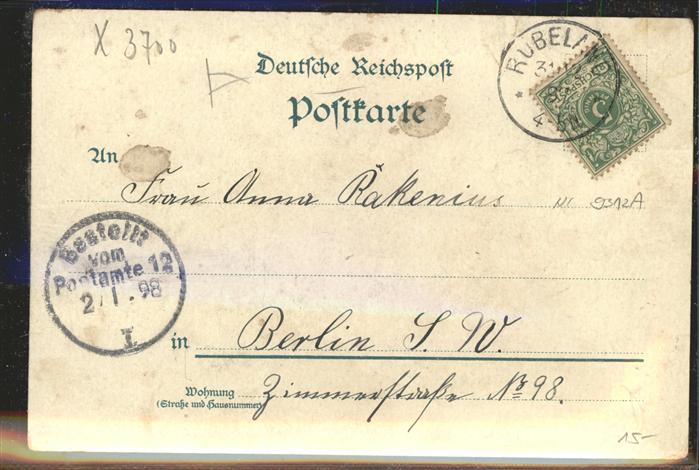 X 3700
Deutsche Reichspost
Postkarte
RÜBELAND
31
4-5N
5
An Frau Anna Räkenius
9312A
Bestellt
vom
Postamte 12
2/1.98
I.
in Berlin S. W.
Wohnung
(Straße und Hausnummer)
Zimmerstraße No 98.
15-